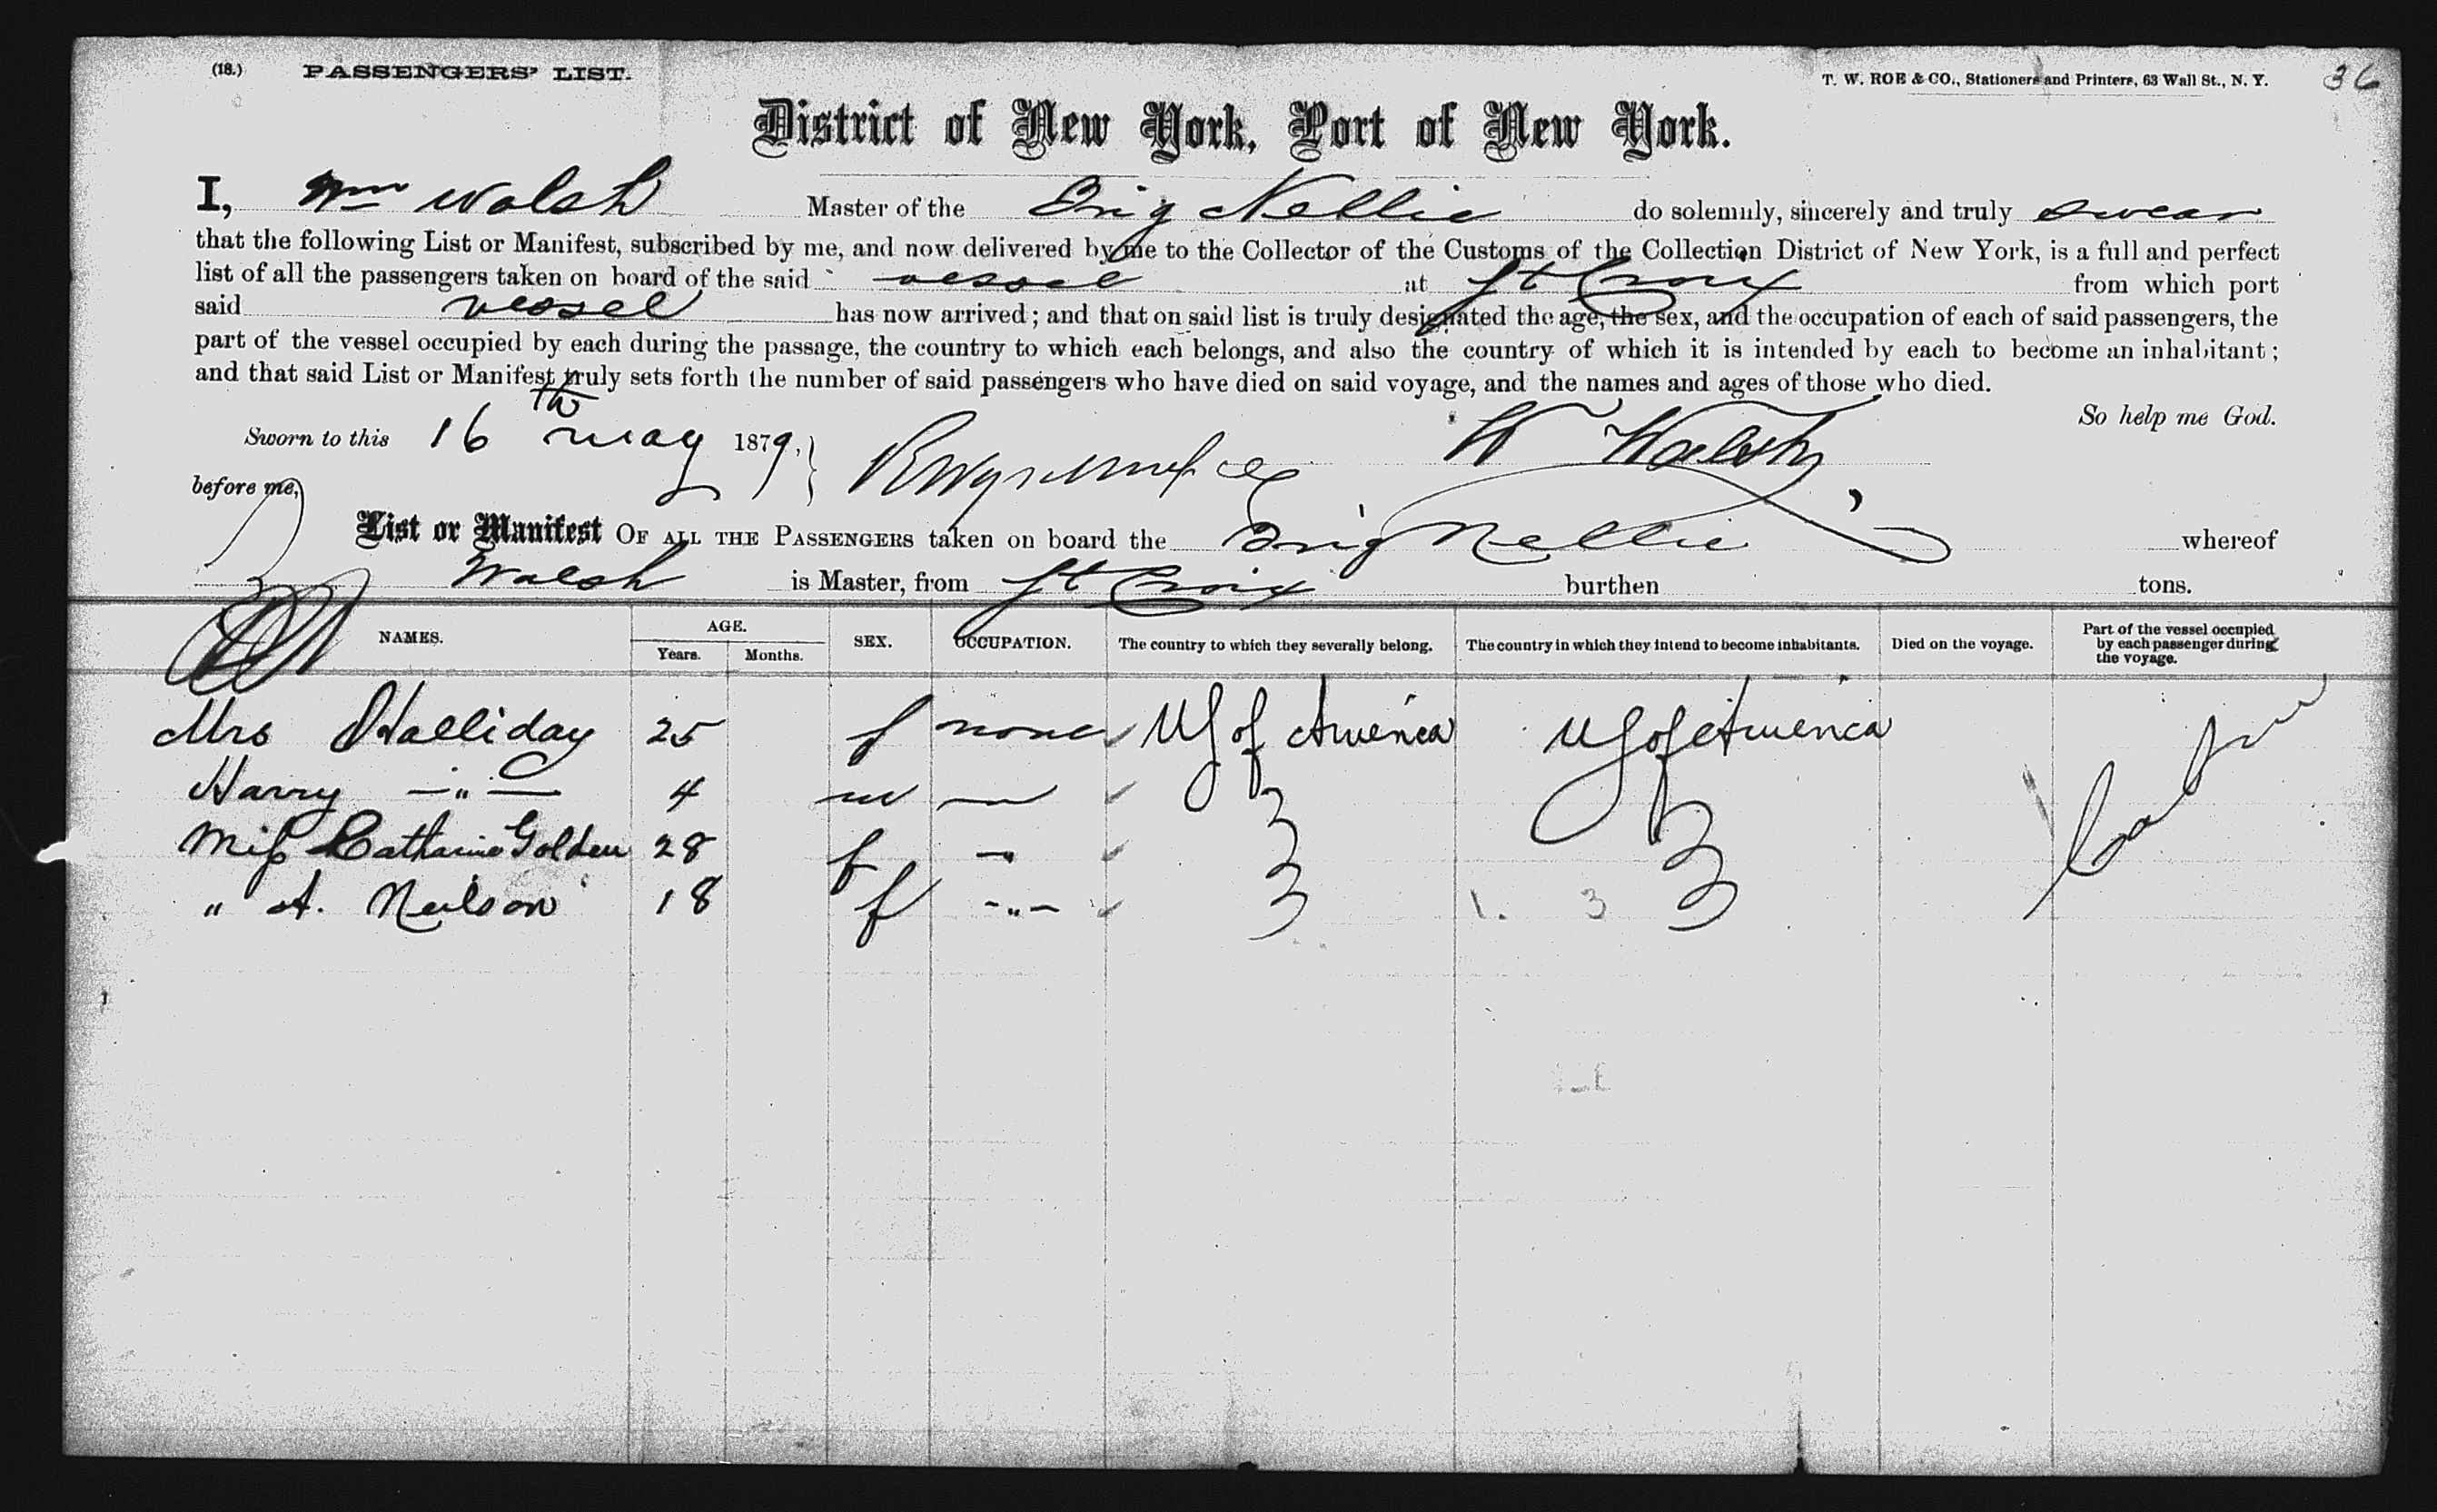 (18.) PASSENGERS' LIST. T. W. ROE & CO., Stationers and Printers, 63 Wall St., N. Y. 36
District of New York, Port of New York.
I, Wm Walsh Master of the Brig Nellie do solemnly, sincerely and truly swear
that the following List or Manifest, subscribed by me, and now delivered by me to the Collector of the Customs of the Collection District of New York, is a full and perfect
list of all the passengers taken on board of the said vessel at St Croix from which port
said vessel has now arrived; and that on said list is truly designated the age, the sex, and the occupation of each of said passengers, the
part of the vessel occupied by each during the passage, the country to which each belongs, and also the country of which it is intended by each to become an inhabitant;
and that said List or Manifest truly sets forth the number of said passengers who have died on said voyage, and the names and ages of those who died.
So help me God.
Sworn to this 16th May 1879, W Walsh
before me,
List or Manifest OF ALL THE PASSENGERS taken on board the Brig Nellie whereof
Walsh is Master, from St Croix burthen tons.
NAMES. AGE. Years. Months. SEX. OCCUPATION. The country to which they severally belong. The country in which they intend to become inhabitants. Died on the voyage. Part of the vessel occupied by each passenger during the voyage.
Mrs Halliday 25 f none US of America US of America Cabin
Harry —"— 4 m —
Miss Catharine Golden 28 f -"
" A. Neilson 18 f -"- 1. 3